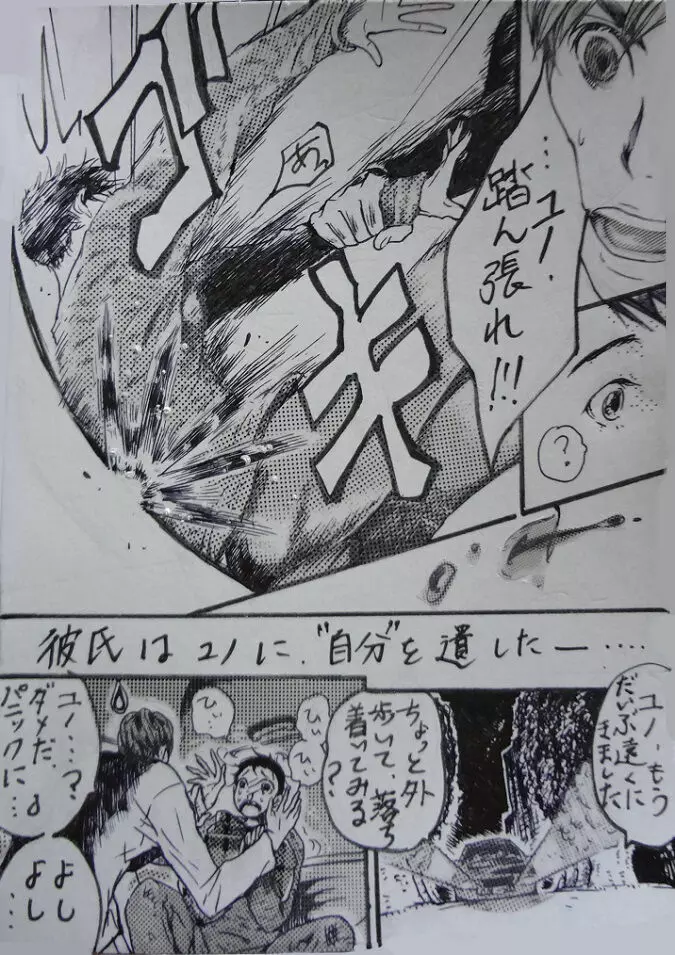 …ユノ、
踏ん張れ!!!
あっ
ズキ
?
彼氏はユノに、"自分"を遺したー……
ユノ、もう
だいぶ遠くに
きました
ちょっと外
歩いて、落ち
着いてみる
?
ひぃ
ひぃ
ひぃ
ユノ…?
ダメだ、
パニックに…
よし
よし
…